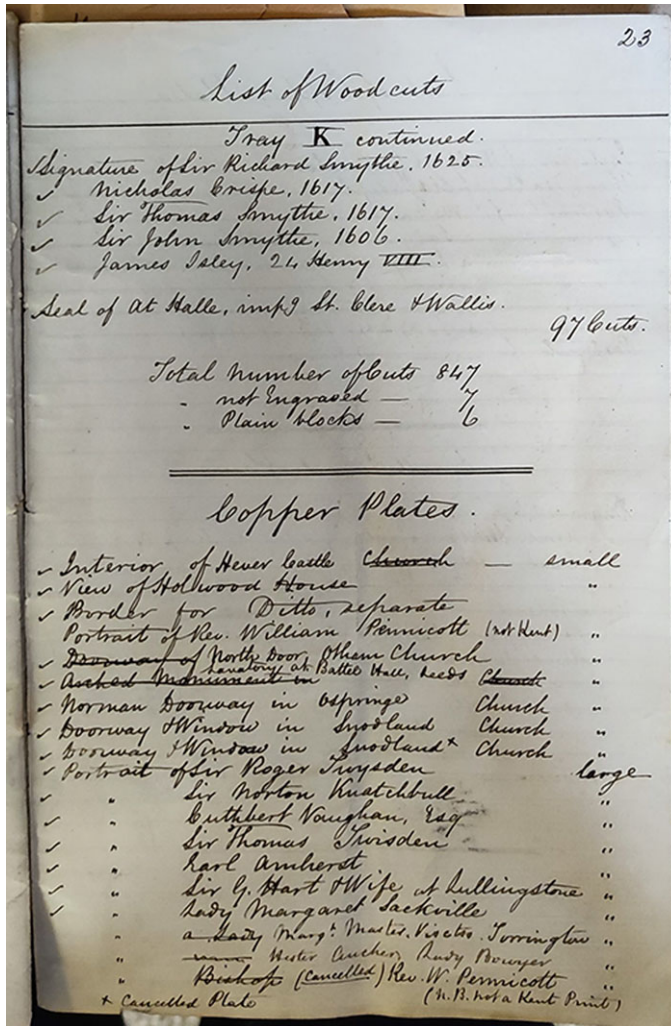 23
List of Woodcuts
Tray K continued.
Signature of Sir Richard Smythe, 1625.
✓ Nicholas Crispe, 1617.
✓ Sir Thomas Smythe, 1617.
✓ Sir John Smythe, 1606.
✓ James Isley, 24 Henry VIII.
Seal of At Halle, impg St. Clere & Wallis.
97 Cuts.
Total Number of Cuts 847
" not Engraved — 7
" Plain blocks — 6
Copper Plates.
✓ Interior of Hever Castle Church — small
✓ View of Holwood House "
✓ Border for Ditto, separate
Portrait of Rev. William Pennicott (not Kent) "
✓ Doorway of North Door, Otham Church "
✓ Arched Monument in Lavatory at Battel Hall, Leeds Church "
✓ Norman Doorway in Ospringe Church "
✓ Doorway & Window in Snodland Church "
✓ Doorway & Window in Snodland + Church "
✓ Portrait of Sir Roger Twysden large
✓ " Sir Norton Knatchbull "
✓ " Cuthbert Vaughan, Esq "
✓ " Sir Thomas Twisden "
✓ " Earl Amherst "
✓ " Sir G. Hart & Wife at Lullingstone "
✓ " Lady Margaret Sackville "
" a Lady Margt. Master. Visctss. Torrington "
" Hester Aucher, Lady Bowyer "
" Bishop (cancelled) Rev. W. Pennicott "
+ Cancelled Plate (N.B. not a Kent Print)